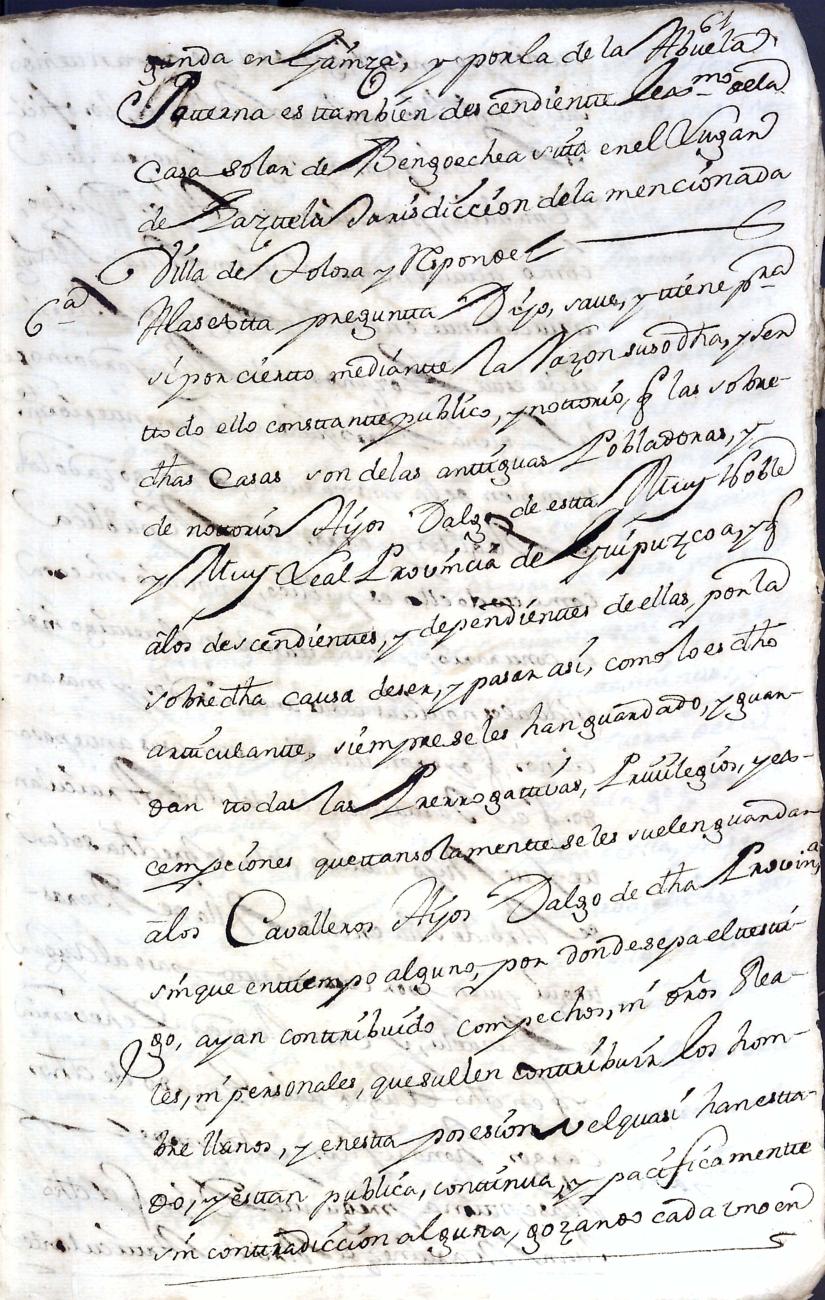 61
gunda en Gainza, y por la de la Abuela
Paterna es ttambien descendientte lex.mo de la
Casa Solar de Bengoechea sitta en el Lugar
de Gaztelu Jurisdiccion de la mencionada
Villa de Tolosa y Responde
6.a
A la sextta preguntta Dijo, save, y ttiene p.ra
si por ciertto mediantte la Razon susodha, y ser
ttodo ello consttantte publico, y nottorio, q las sobre-
dhas Casas son de las anttiguas Pobladoras, y
de nottorios Hijos Dalgo de estta Muy Noble
y Muy Leal Provincia de Guipuzcoa, y q
a los descendienttes, y dependienttes de ellas, por la
sobredha causa de ser, y pasar asi, como lo es dho
artticulantte, siempre se les han guardado, y guar-
dan ttodas las Prerrogattivas, Privilegios, y es-
cempciones que ttan solamentte se les suelen guardar
a los Cavalleros Hijos Dalgo de dha Provin.a
sin que en ttiempo alguno, por donde sepa el ttestti-
go, ayan conttribuido com pechos, ni dros Rea-
les, ni personales, que sullen conttribuir los hom-
bre llanos, y en estta posesion vel quasi han estta-
do, y esttan publica, conttinua, y pacificamentte
sin conttradiccion alguna, gozando cada uno en